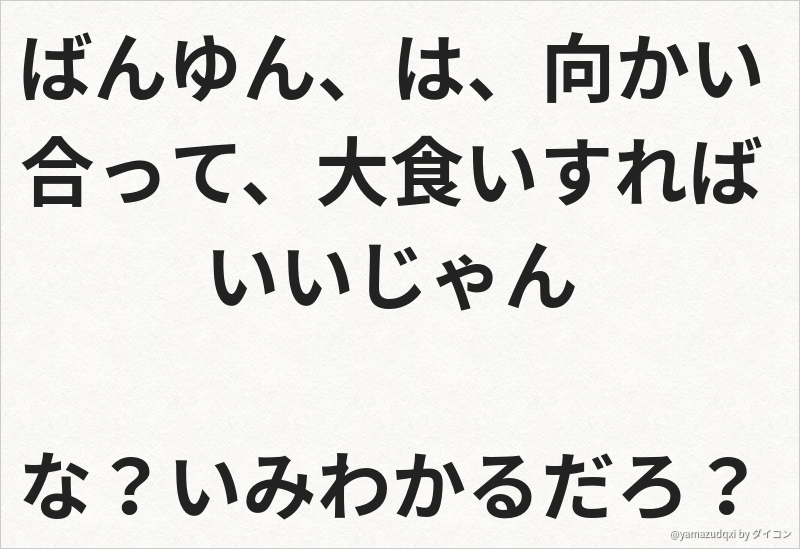 ばんゆん、は、向かい
合って、大食いすれば
いいじゃん
な？いみわかるだろ？
@yamazudqxi by ダイコン